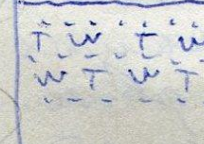 T W T W
W T W T